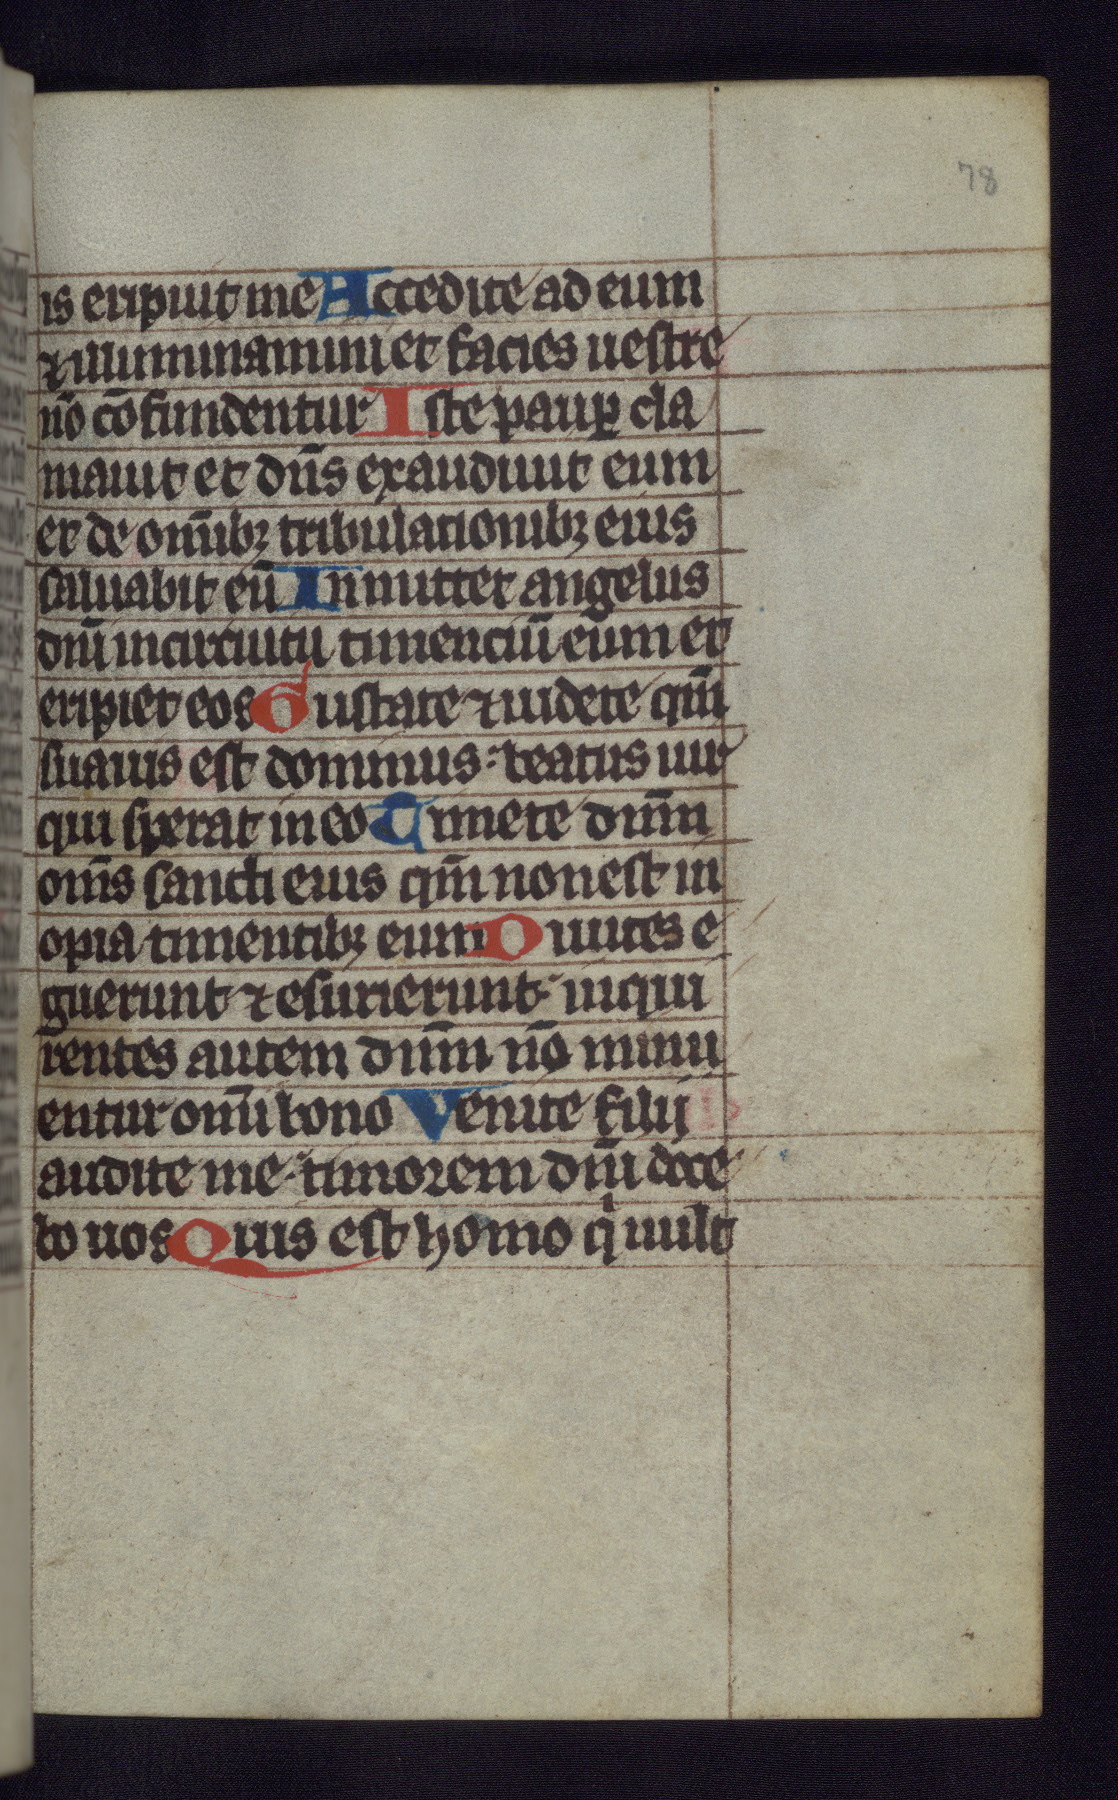 78
is eripiuit me Accedite ad eum
⁊ illuminamini et facies uestre
nō cōfundentur Iste paup̲ cla
mauit et dn̄s exaudiuit eum
et de om̄ibꝫ tribulationibꝫ eius
saluabit eū Inmittet angelus
dn̄i incircuitu timenciū eum et
eripiet eos Gustate ⁊ uidete qm̄
suauis est dominus: beatus uir
qui sperat in eo Timete dn̄m
om̄s sancti eius qm̄ non est in
opia timentibꝫ eum Diuites e
guerunt ⁊ esurierunt: inqui
rentes autem dn̄m nō minu
entur om̄i bono Venite filij
audite me: timorem dn̄i doce
bo uos Quis est homo qͥ uult